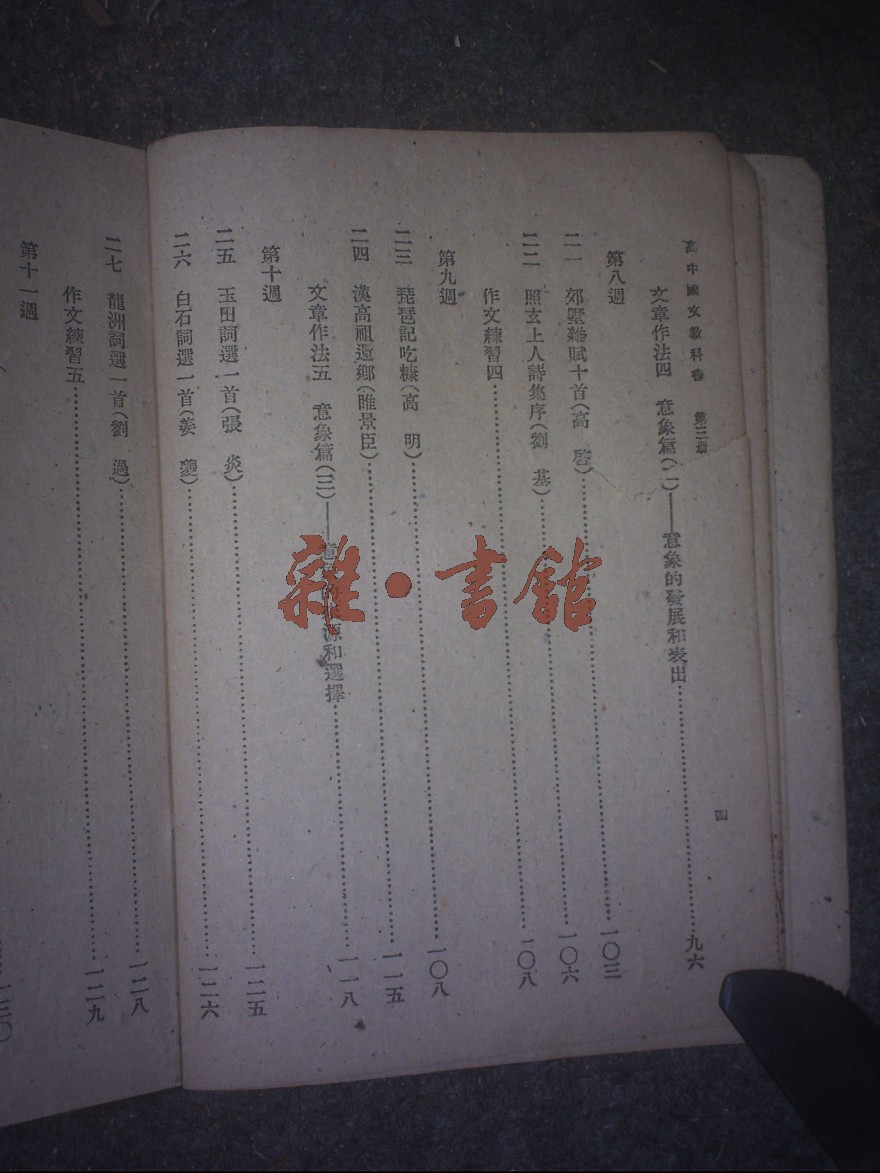 高中國文教科書 第三冊
四
文章作法四 意象篇(二)——意象的發展和表出……九六
第八週
二一 郊墅雜賦十首(高 啓)……一〇三
二二 照玄上人詩集序(劉 基)……一〇六
作文練習四……一〇八
第九週
二三 琵琶記吃糠(高 明)……一〇八
二四 漢高祖還鄉(睢景臣)……一一五
文章作法五 意象篇(三)——意源和選擇……一一八
第十週
二五 玉田詞選一首(張 炎)……一二五
二六 白石詞選一首(姜 夔)……一二六
二七 龍洲詞選一首(劉 過)……一二八
作文練習五……一二九
第十一週
一三〇
雜·書館